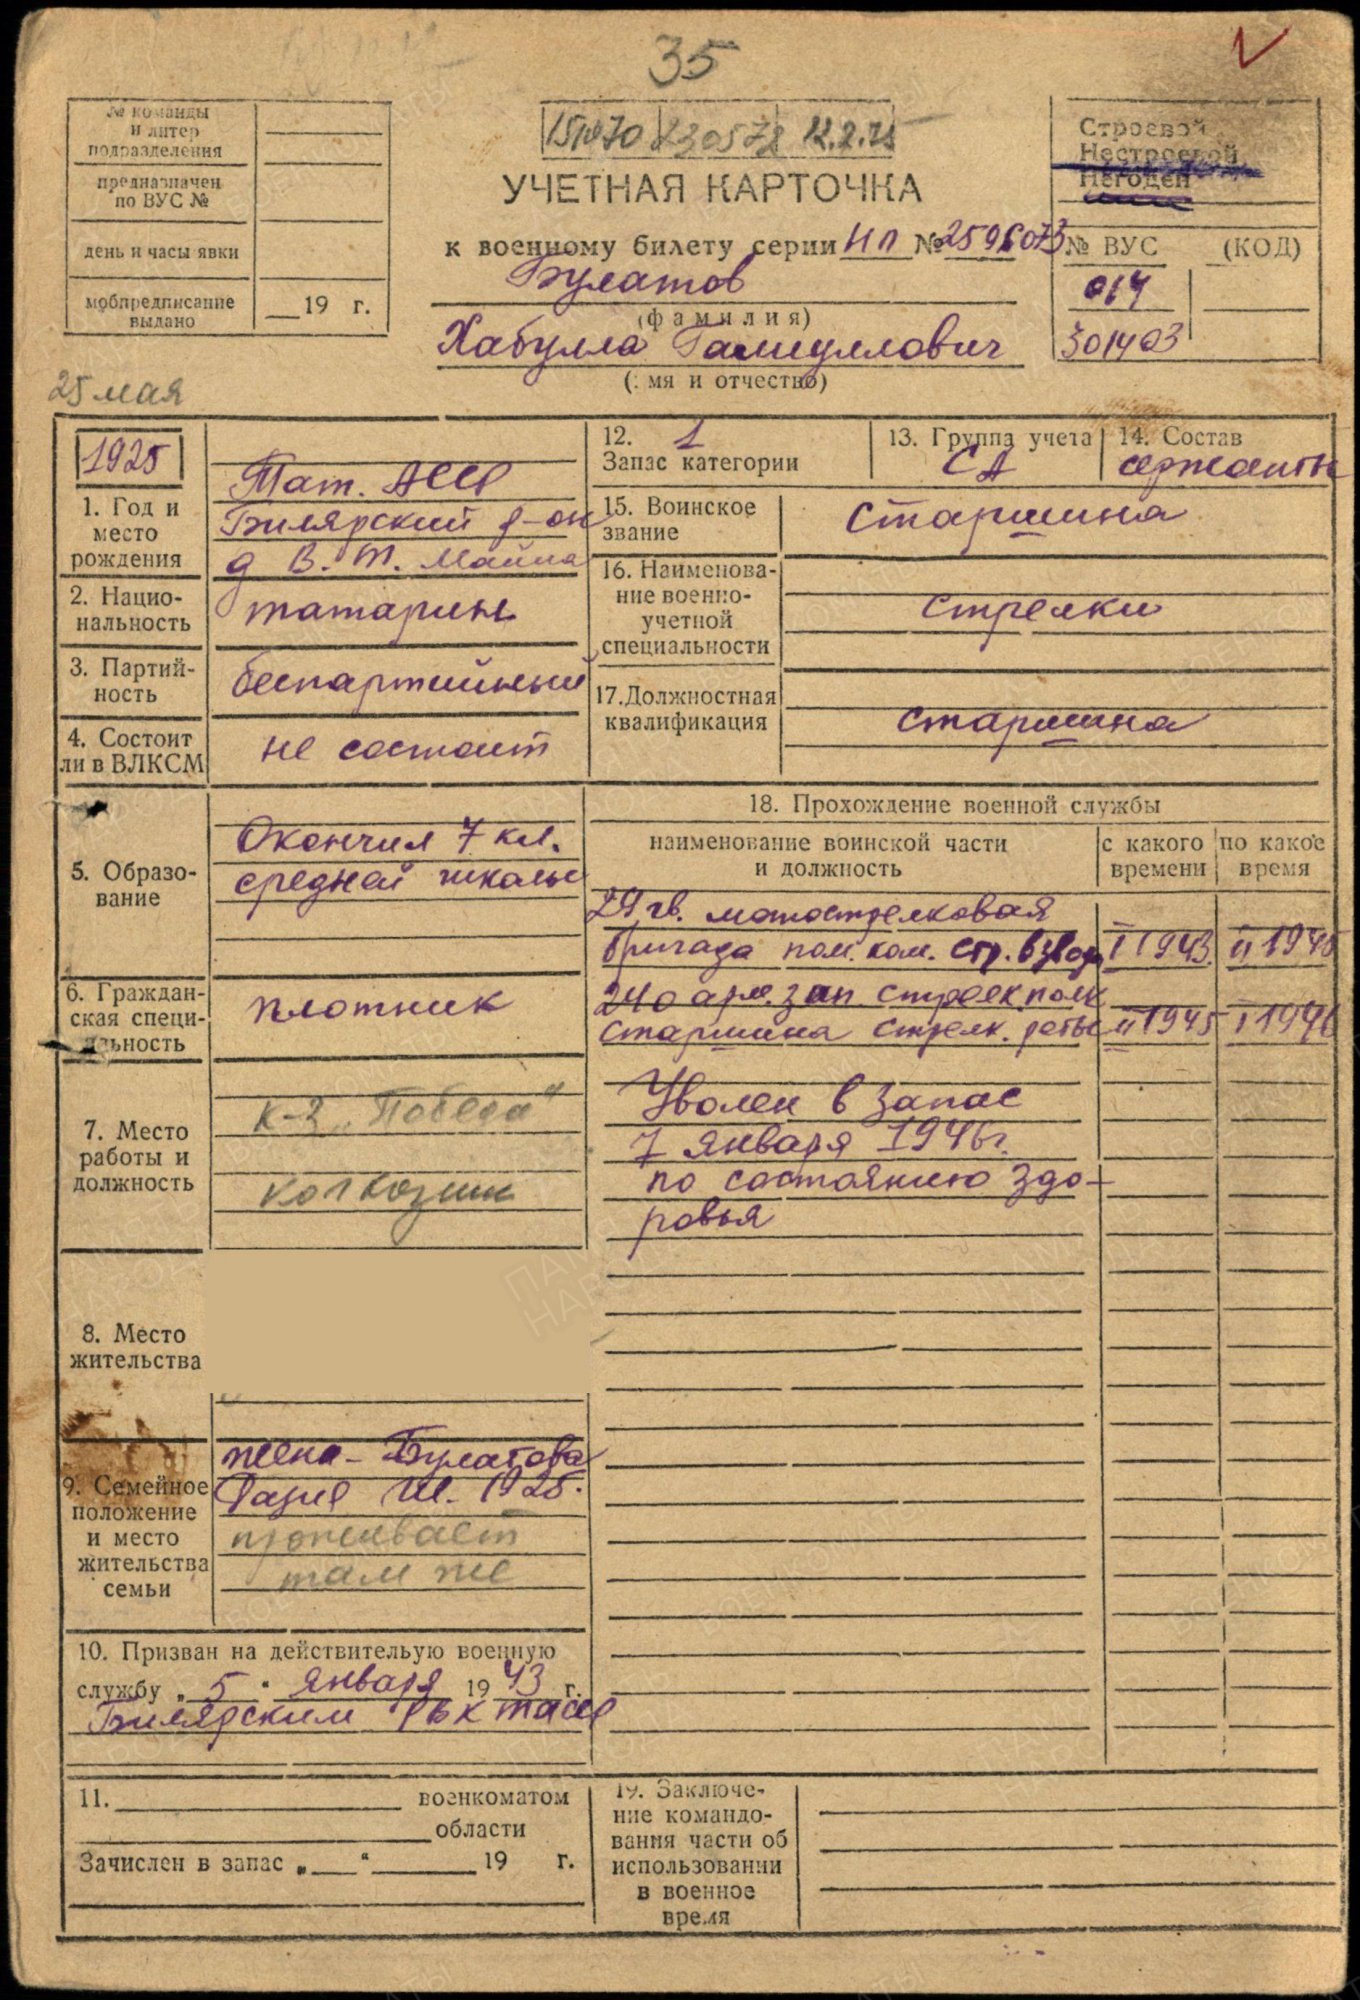 35
№ команды
и литер
подразделения
предназначен
по ВУС №
день и часы явки
мобпредписание
выдано
19 г.
12.2.75
УЧЕТНАЯ КАРТОЧКА
к военному билету серии НП №
Булатов
(фамилия)
Хабулла Гамиуллович
(: мя и отчество)
Строевой
Нестроевой
Негоден
№ ВУС (КОД)
014
301403
25 мая
1925
1. Год и
место
рождения
Тат. АССР
Билярский р-он
д В. Т. Майна
2. Нацио-
нальность
татарин
3. Партий-
ность
беспартийный
4. Состоит
ли в ВЛКСМ
не состоит
5. Образо-
вание
Окончил 7 кл.
средней школы
6. Граждан-
ская специ-
альность
плотник
7. Место
работы и
должность
к-з „Победа"
колхозник
8. Место
жительства
9. Семейное
положение
и место
жительства
семьи
жена - Булатова
Разия Ш. 1925.
проживает
там же
10. Призван на действительую военную
службу „5" января 1943 г.
Билярским РВК ТАССР
11. военкоматом
области
Зачислен в запас „ " 19 г.
12. 1
Запас категории
13. Группа учета
СА
14. Состав
сержанты
15. Воинское
звание
старшина
16. Наименова-
ние военно-
учетной
специальности
стрелки
17.Должностная
квалификация
старшина
18. Прохождение военной службы
наименование воинской части
и должность
с какого
времени
по какое
время
29 гв. мотострелковая
бригада пом. ком. стр. взвода I 1943. II 1945
240 арм. зап стрелк. полк
старшина стрелк. роты II 1945 I 1946
Уволен в запас
7 января 1946г.
по состоянию здо-
ровья
19. Заключе-
ние командо-
вания части об
использовании
в военное
время